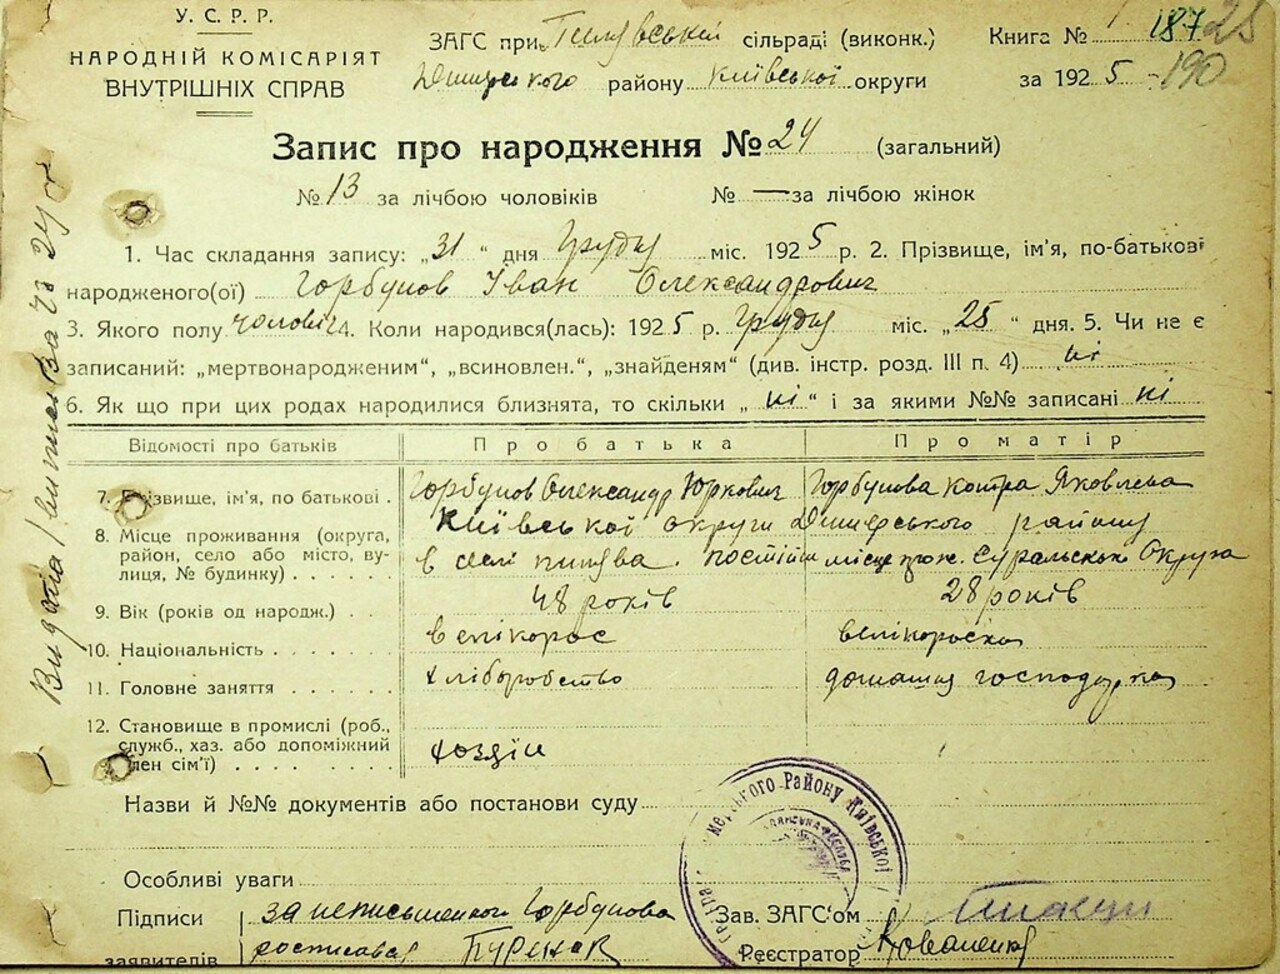 У. С. Р. Р.
НАРОДНІЙ КОМІСАРІЯТ
ВНУТРІШНІХ СПРАВ
ЗАГС при сільраді (виконк.)
Димерського району Київської округи
Книга № 187 25
за 1925 190
Запис про народження № 24 (загальний)
№ 13 за лічбою чоловіків № — за лічбою жінок
1. Час складання запису: „31“ дня Грудня міс. 1925 р. 2. Прізвище, ім'я, по-батькові
народженого(ої) Горбунов Іван Олександрович
3. Якого полу чолові 4. Коли народився(лась): 1925 р. Грудня міс. „25“ дня. 5. Чи не є
записаний: „мертвонародженим“, „всиновлен.“, „знайденям“ (див. інстр. розд. III п. 4) ні
6. Як що при цих родах народилися близнята, то скільки „ні“ і за якими №№ записані ні
Відомості про батьків Про батька Про матір
7. Прізвище, ім'я, по батькові . Горбунов Олександр Юркович Горбунова Яковлевна
8. Місце проживання (округа, район, село або місто, вулиця, № будинку) Київської округи Димерського району
в селі постійн місце прож. Округа
9. Вік (років од народж.) 48 років 28 років
10. Національність великорос великороска
11. Головне заняття хліборобство домашня господарка
12. Становище в промислі (роб., служб., хаз. або допоміжний член сім'ї) хозяін
Назви й №№ документів або постанови суду
мерського Району Київської
Особливі уваги
Підписи заявителів за неписьменного Горбунова
росписався
Зав. ЗАГС'ом
Реєстратор Коваленко